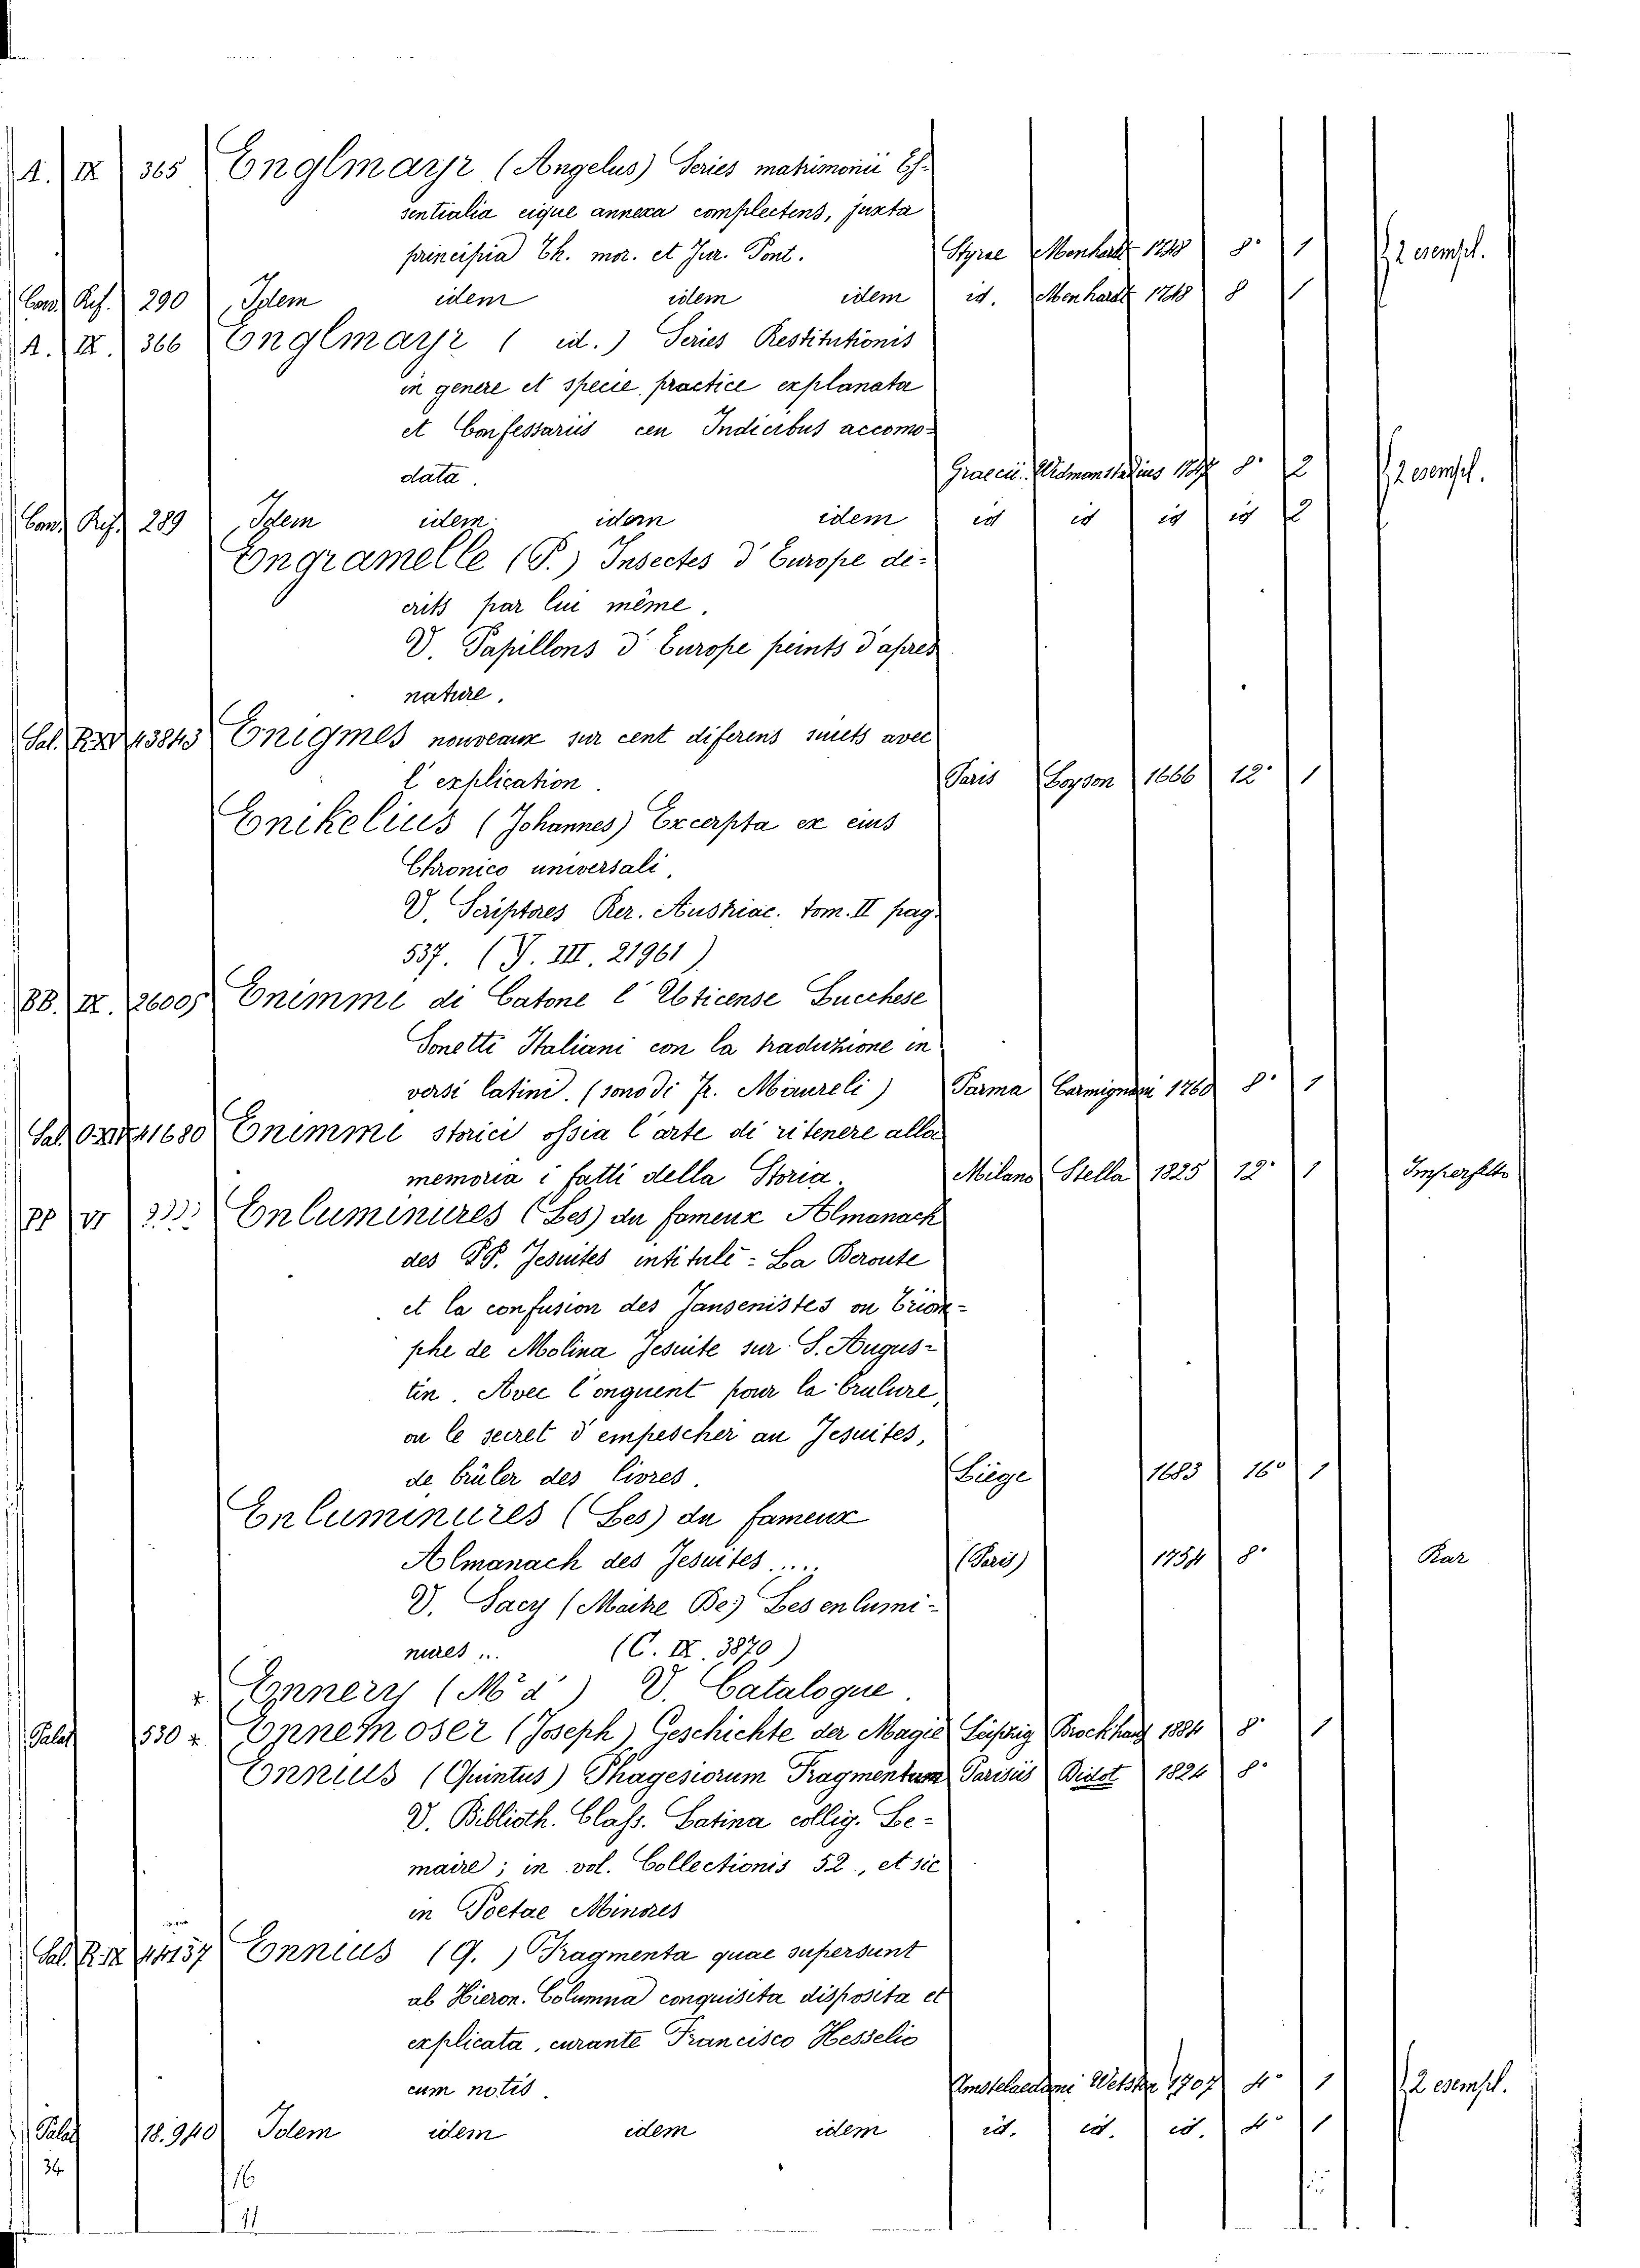 A. IX 365 Englmayr (Angelus) Series matrimonii Es-
sentialia eique annexa complectens, juxta
principia Th. mor. et Jur. Pont. Styrae Menhardt 1748 8° 1 2 esempl.
Cons. Ref. 290 Idem idem idem idem id. Menhardt 1748 8 1
A. IX. 366 Englmayr ( id. ) Series Restitutionis
in genere et specie practice explanata
et Confessariis ceu Indicibus accomo-
data. Graecii. Widmanstadius 8° 2 2 esempl.
Cons. Ref. 289 Idem idem idem idem id id id id 2
Engramelle (P.) Insectes d'Europe di-
crits par lui même.
V. Papillons d'Europe peints d'apres
nature.
Sal. R.XV 43843 Enigmes nouveaux sur cent diferens suiets avec
l'explication. Paris Loyson 1666 12° 1
Enikelius (Johannes) Excerpta ex eius
Chronico universali,
V. Scriptores Rer. Austriac. tom. II pag.
537. (Y. III. 21961)
BB. IX. 26005 Enimme di Catone l'Uticense Lucchese
Sonetti Italiani con la traduzione in
versi latini. (sono di Fr. Maureli) Parma Carmignani 1760 8° 1
Sal. 41680 Enimmi storici ossia l'arte di ritenere alla
memoria i fatti della Storia. Milano Stella 1825 12° 1 Imperfetto
PP VI Enluminures (Les) du fameux Almanach
des PP. Jesuites intitulé: La Deroute
et la confusion des Jansenistes ou Triom-
phe de Molina Jesuite sur S. Augus-
tin. Avec l'onguent pour la brulure,
ou le secret d'empescher au Jesuites,
de brüler des livres. Liège 1683 16° 1
Enluminures (Les) du fameux
Almanach des Jesuites .... (Paris) 1754 8° Rar
V. Sacy (Maitre De) Les enlumi-
nures ... (C. IX. 3870)
+ Ennery (M.r d') V. Catalogue.
Palat 530 + Ennemoser (Joseph) Geschichte der Magie Leipzig Brockhaus 1884 8° 1
Ennius (Quintus) Phagesiorum Fragmentum Parisiis Didot 1824 8°
V. Biblioth. Class. Latina collig. Le-
maire; in vol. Collectionis 52., et sic
in Poetae Minores
Sal. R.IX 44137 Ennius (Q.) Fragmenta quae supersunt
ab Hieron. Columna conquisita disposita et
explicata, curante Francisco Hesselio
cum notis. Amstelaedami Wetsten 1707 4° 1 2 esempl.
Palat 18.940 Idem idem idem idem id. id. id. 4° 1
34
16
11